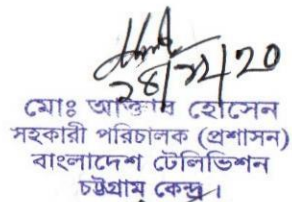 ২৪/১২/২০
মোঃ আক্তার হোসেন
সহকারী পরিচালক (প্রশাসন)
বাংলাদেশ টেলিভিশন
চট্টগ্রাম কেন্দ্র।